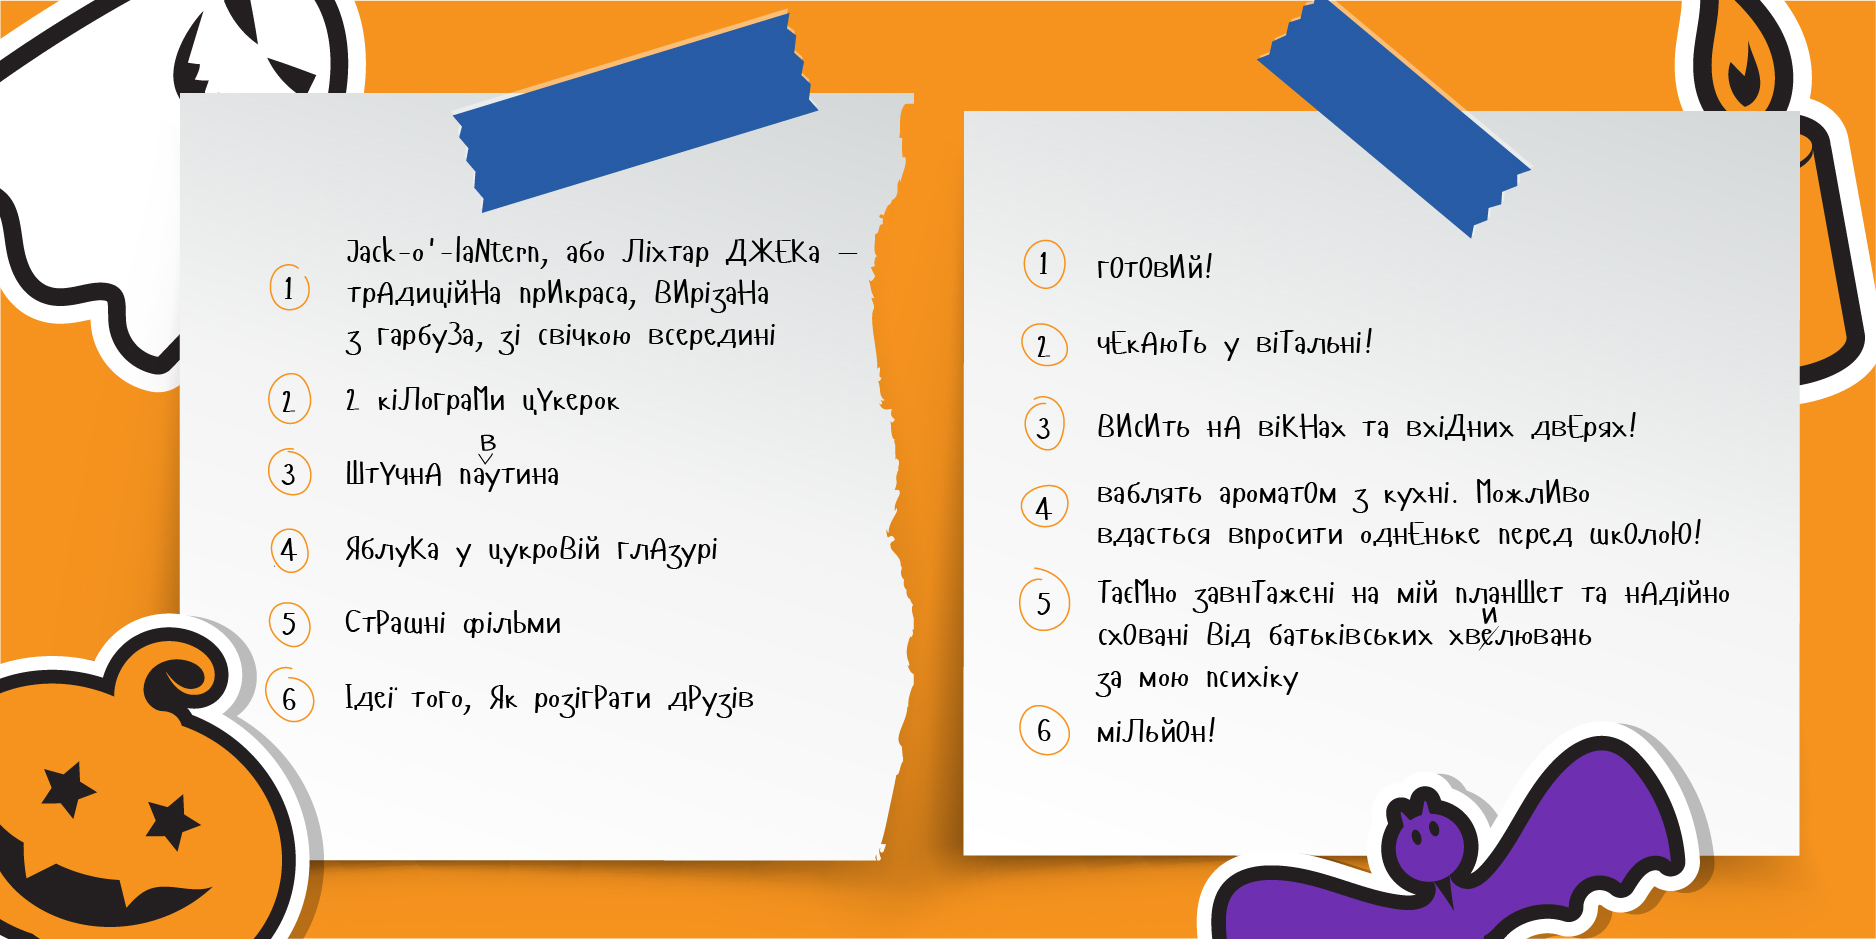 1 Jack-o'-laNtern, або Ліхтар ДЖЕКа –
трАдиційНа прИкраса, ВИрізаНа
з гарбуЗа, зі свічкою всередині
2 2 кіЛограМи цУкерок
в
3 ШтУчнА паутина
4 ЯблуКа у цукроВій глАзурі
5 СтРашні фільми
6 Ідеї того, Як розігРати дРузів
1 гОтОвИй!
2 чЕкАюТь у віТальні!
3 ВИсИть нА віКНах та вхіДних двЕрях!
4 ваблять ароматОм з кухні. МожлИво
вдасться впросити однЕньке перед шкОлоЮ!
5 ТаєМно завнТажені на мій планШет та нАдійно
и
схОвані Від батьківських хвелювань
за мою психіку
6 міЛьйОн!